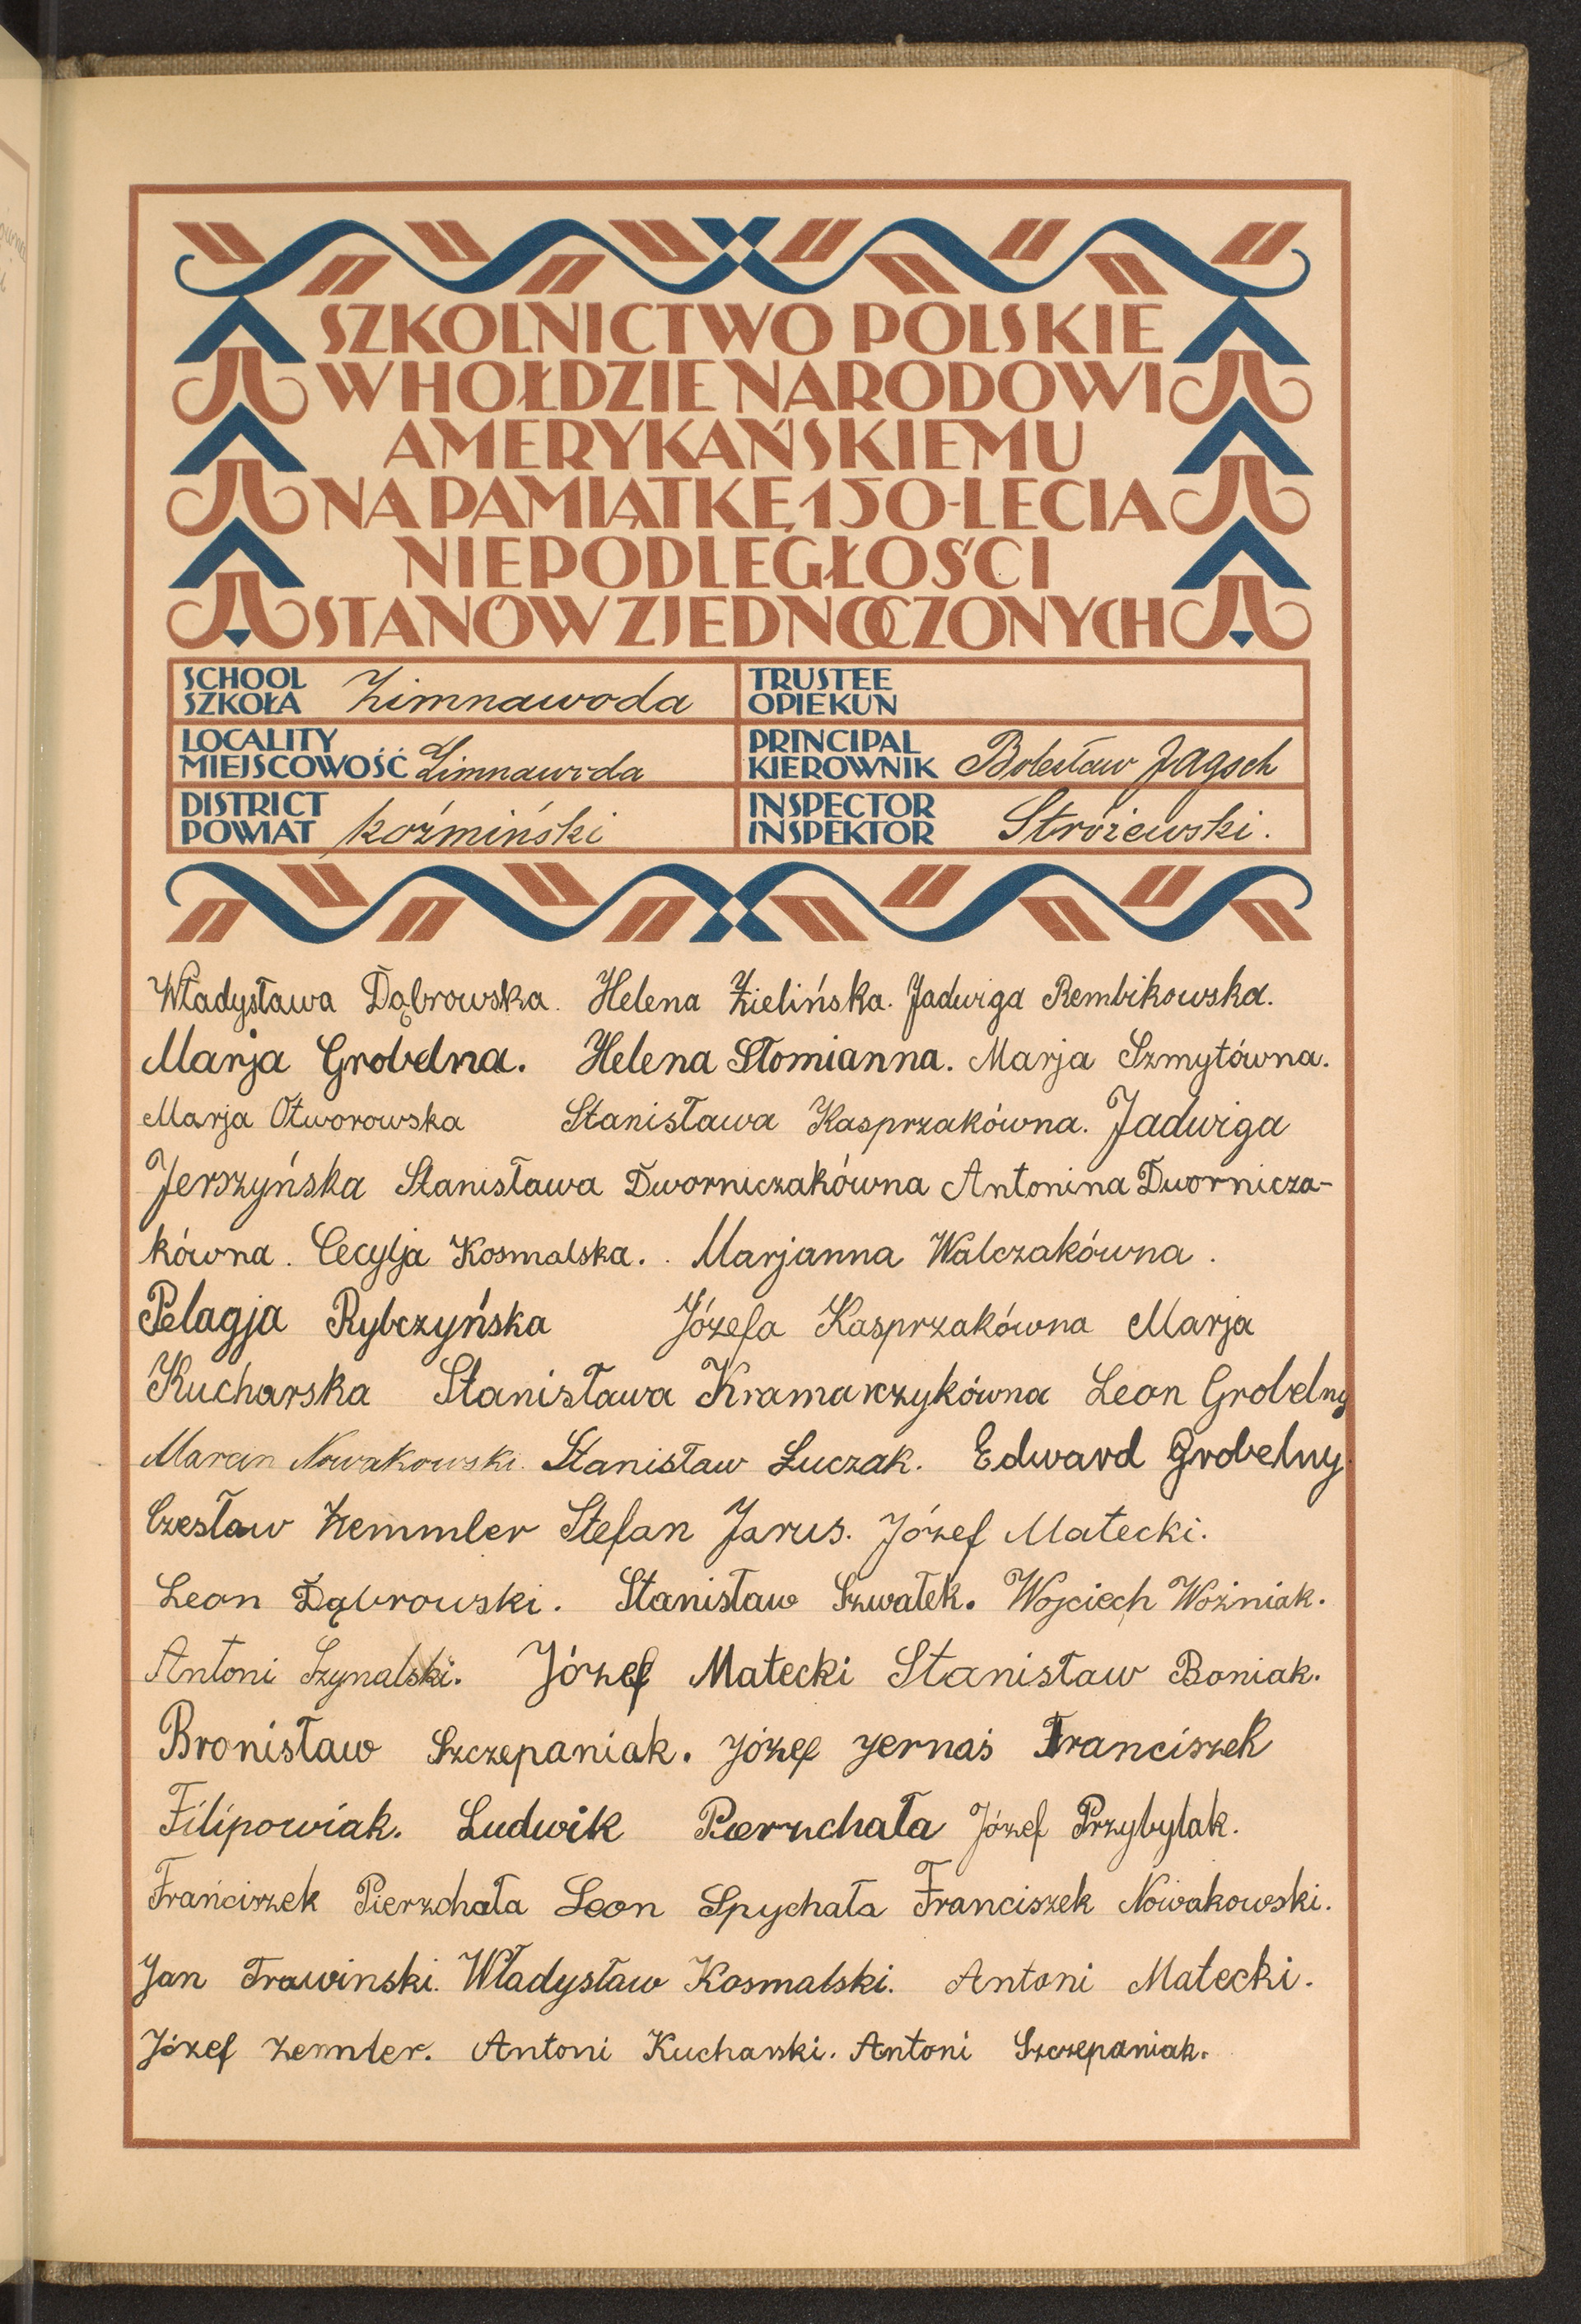 SZKOLNICTWO POLSKIE
W HOŁDZIE NARODOWI
AMERYKAŃSKIEMU
NA PAMIĄTKĘ 150-LECIA
NIEPODLEGŁOŚCI
STANÓW ZJEDNOCZONYCH
SCHOOL
SZKOŁA Zimnawoda
TRUSTEE
OPIEKUN
LOCALITY
MIEJSCOWOŚĆ Zimnawoda
PRINCIPAL
KIEROWNIK Bolesław Jagsch
DISTRICT
POWIAT koźmiński
INSPECTOR
INSPEKTOR Stróżewski.
Władysława Dąbrowska. Helena Zielińska. Jadwiga Rembikowska.
Marja Grobelna. Helena Słomianna. Marja Szmytówna.
Marja Otworowska Stanisława Kasprzakówna. Jadwiga
Jerszyńska Stanisława Dworniczakówna Antonina Dwornicza-
kówna. Cecylja Kosmalska. Marjanna Walczakówna.
Pelagja Rybczyńska Józefa Kasprzakówna Marja
Kucharska Stanisława Kramarczykówna Leon Grobelny
Marcin Nowakowski. Stanisław Łuczak. Edward Grobelny.
Czesław Zemmler Stefan Jarus. Józef Matecki.
Leon Dąbrowski. Stanisław Szwałek. Wojciech Woźniak.
Antoni Szynalski. Józef Matecki Stanisław Boniak.
Bronisław Szczepaniak. Józef Jernaś Franciszek
Filipowiak. Ludwik Pierzchała Józef Przybylak.
Franciszek Pierzchała Leon Spychała Franciszek Nowakowski.
Jan Trawinski. Władysław Kosmalski. Antoni Matecki.
Józef Zemler. Antoni Kucharski. Antoni Szczepaniak.